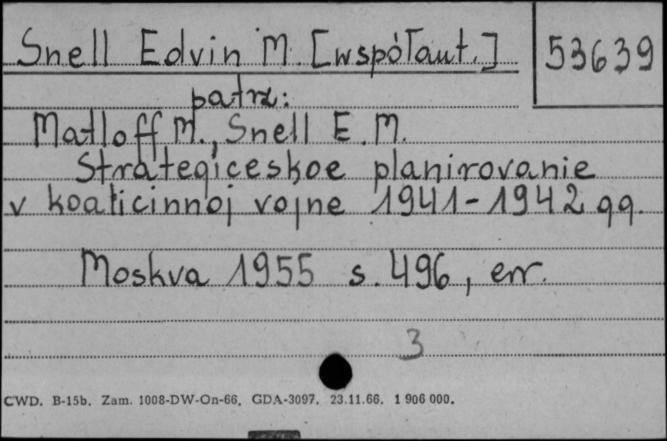 Snell Edvin M. [współaut.] 53639
patrz:
Matloff M., Snell E.M.
Strategiceskoe planirovanie
v koalicinnoj vojne 1941-1942 gg.
Moskva 1955 s. 496, err.
3
CWD. B-15b. Zam. 1008-DW-On-66. GDA-3097. 23.11.66. 1 906 000.